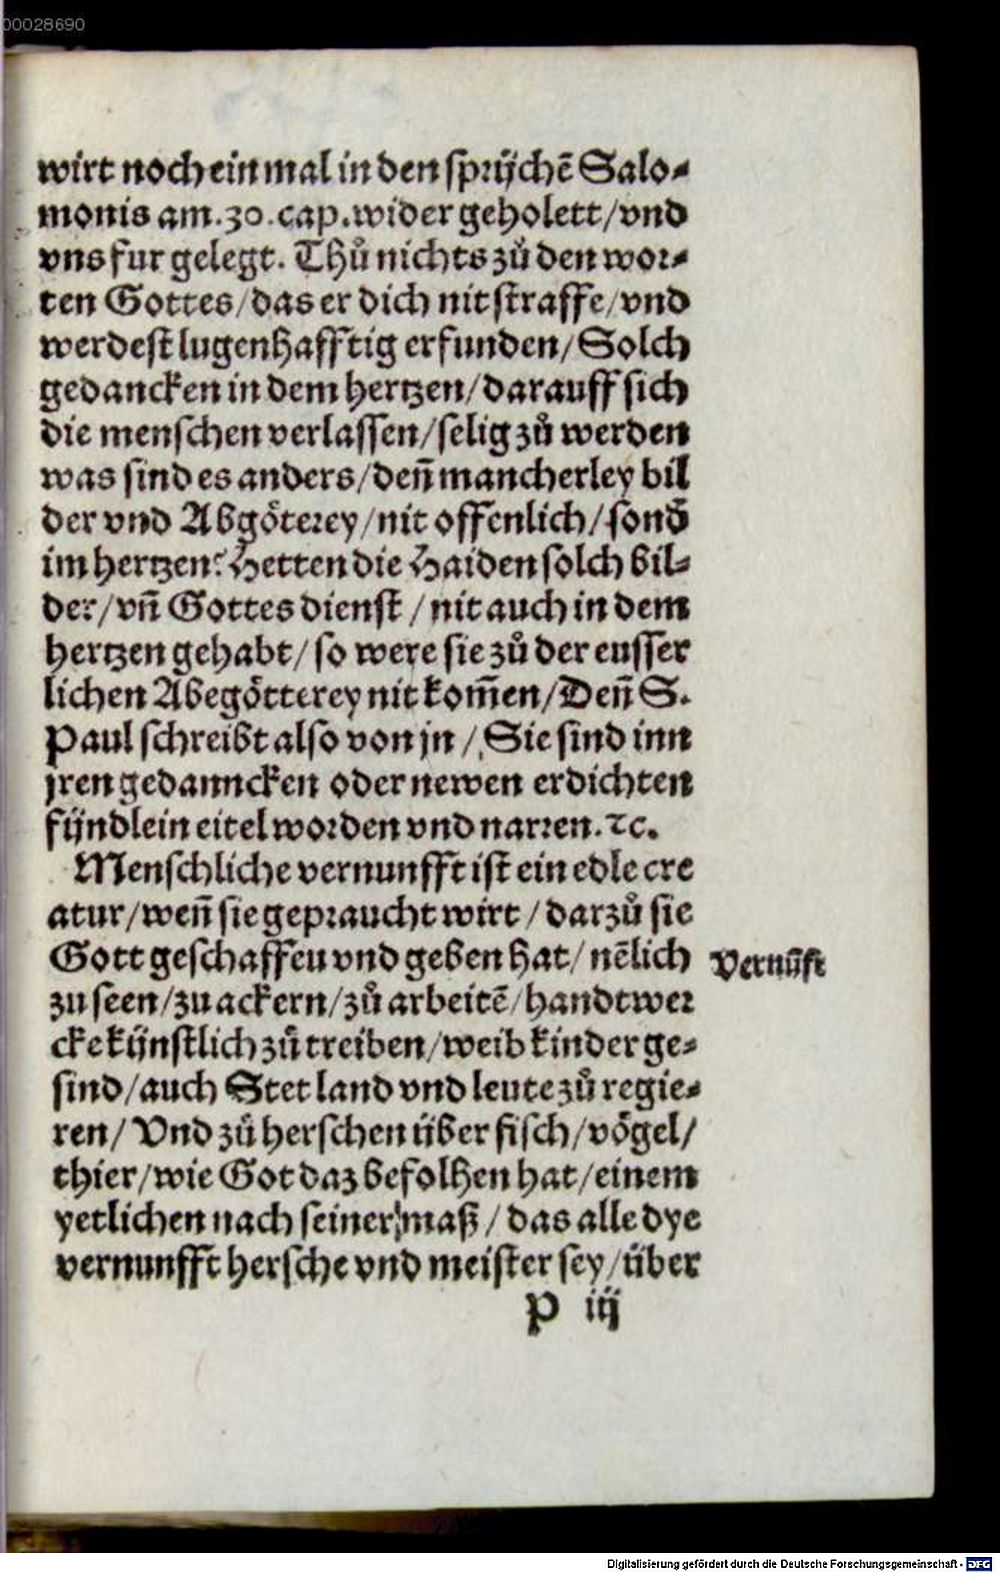 00028690
wirt noch ein mal in den sprÿchē Salo⸗
monis am .30. cap. wider geholett/vnd
vns fur gelegt. Thů nichts zů den wor⸗
ten Gottes/das er dich nit straffe/vnd
werdest lugenhafftig erfunden/Solch
gedancken in dem hertzen/darauff sich
die menschen verlassen/selig zů werden
was sind es anders/deñ mancherley bil
der vnd Abgöterey/nit offenlich/sond̄
im hertzen? Hetten die Haiden solch bil⸗
der/vñ Gottes dienst/nit auch in dem
hertzen gehabt/so were sie zů der eusser
lichen Abegötterey nit kom̄en/Deñ S.
Paul schreibt also von jn/Sie sind inn
jren gedanncken oder newen erdichten
fÿndlein eitel worden vnd narren.ꝛc.
Menschliche vernunfft ist ein edle cre
atur/weñ sie gepraucht wirt/darzů sie
Gott geschaffeu vnd geben hat/nēlich
zu seen/zu ackern/zů arbeitē/handtwer
cke kÿnstlich zů treiben/weib kinder ge⸗
sind/auch Stet land vnd leute zů regie⸗
ren/Vnd zů herschen über fisch/vögel/
thier/wie Got daz befolhen hat/einem
yetlichen nach seiner maß/das alle dye
vernunfft hersche vnd meister sey/über
P iij
Vernūft
Digitalisierung gefördert durch die Deutsche Forschungsgemeinschaft - DFG